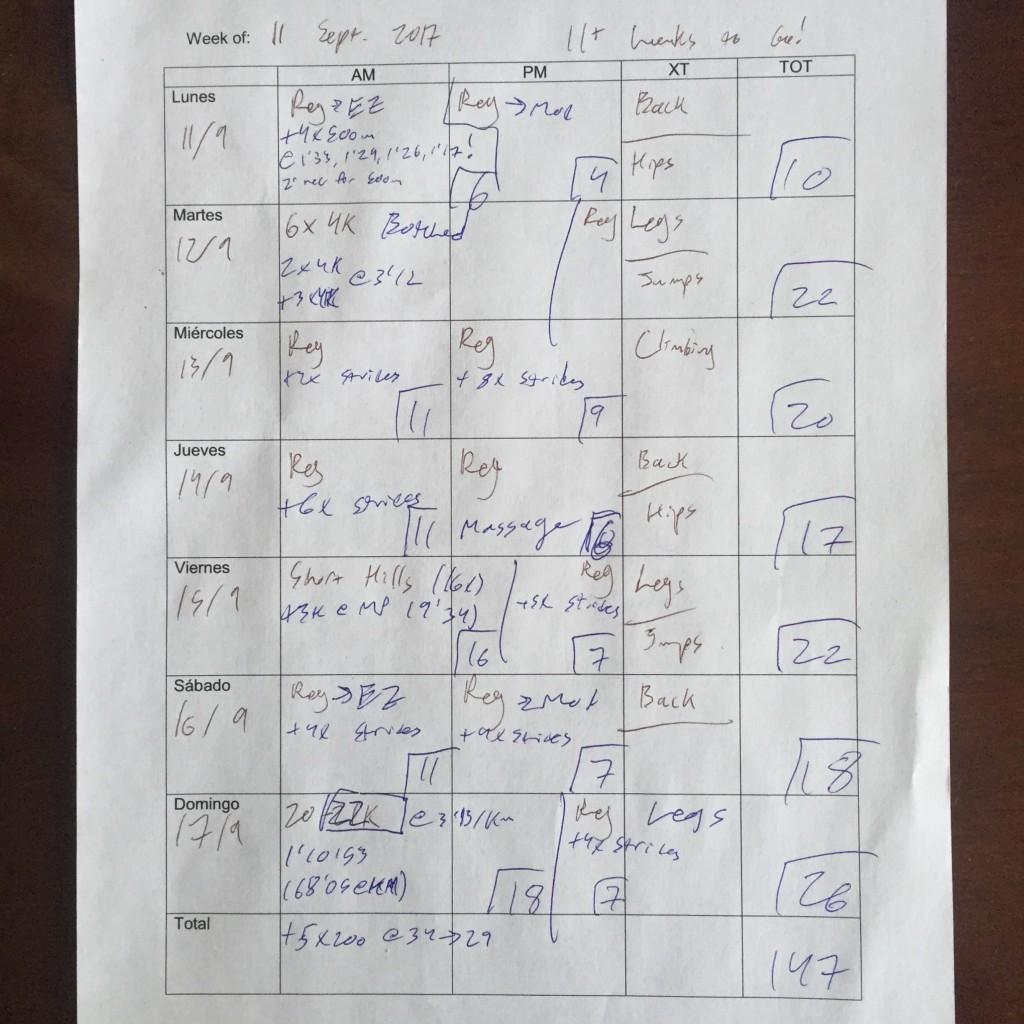 Week of: 11 Sept. 2017 11+ weeks to Go!
AM PM XT TOT
Lunes
11/9
Reg → EZ
+4x500m
@ 1'33, 1'29, 1'26, 1'17!
2' rec for 500m
6
Reg → Mod
4
Back
Hips
10
Martes
12/9
6x4K Botched
2x4K @ 3'12
+3x1K
Reg
Legs
Jumps
22
Miércoles
13/9
Reg
+2x strides
11
Reg
+ 8x strides
9
Climbing
20
Jueves
14/9
Reg
+6x strides
11
Reg
Massage
6
Back
Hips
17
Viernes
15/9
Short Hills (16x)
+3K @ MP (9'34)
16
Reg
+5x strides
7
Legs
Jumps
22
Sábado
16/9
Reg → EZ
+4x strides
11
Reg → Mod
+4x strides
7
Back
18
Domingo
17/9
20 22K @ 3'13/Km
1'10'53
(68'05 @ HM)
18
Reg
+4x strides
7
Legs
26
Total
+5x200 @ 34 → 29
147